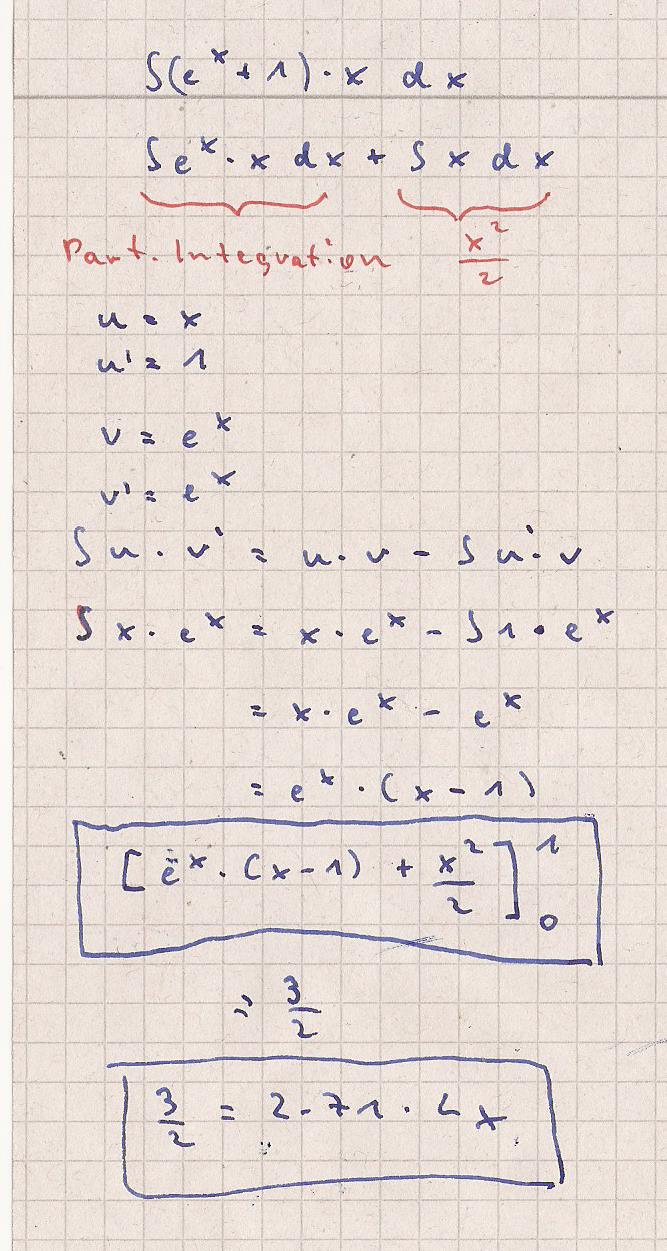 ∫(e^x + 1) · x dx
∫e^x · x dx + ∫ x dx
Part. Integration x^2/2
u = x
u' = 1
v = e^x
v' = e^x
∫ u · v' = u · v - ∫ u' · v
∫ x · e^x = x · e^x - ∫ 1 · e^x
= x · e^x - e^x
= e^x · (x - 1)
[e^x · (x - 1) + x^2/2]_0^1
3/2
3/2 =